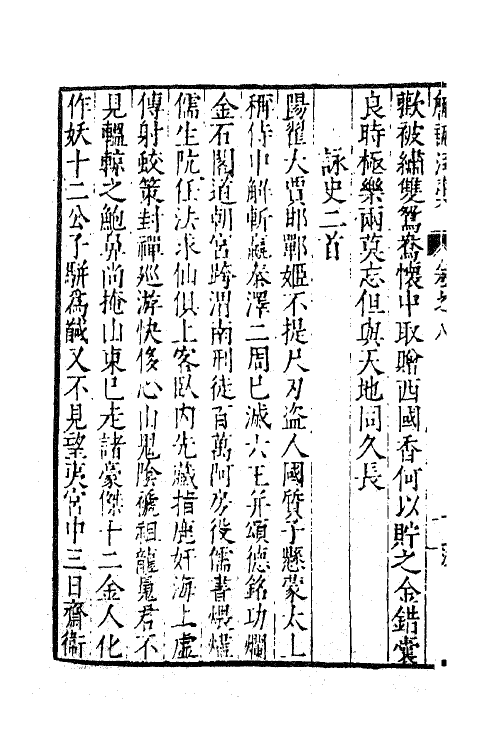 歟被繡雙鴛鴦懷中取贈西國香何以貯之金錯囊
良時極樂兩莫忘但與天地同久長
詠史二首
陽翟大賈邯鄲姬不提尺刃盜人國質子懸蒙太上
稱侍中解斬嬴秦澤二周已滅六王并頌德銘功爛
金石閣道朝宮跨渭南刑徒百萬阿房役儒書煨燼
儒生阬任法求仙俱上客臥內先藏指鹿奸海上虛
傳射蛟策封禪巡游快侈心山鬼陰褫祖龍魄君不
見轀輬之鮑鼻尚掩山東已走諸豪傑十二金人化
作妖十二公子駢爲馘又不見望夷宮中三日齋衞